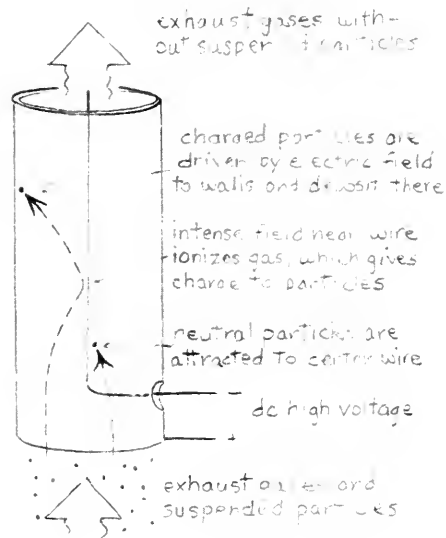 exhaust gases with-
out suspended particles
charged particles are
driven by electric field
to walls and deposit there
intense field near wire
ionizes gas, which gives
charge to particles
neutral particles are
attracted to center wire
dc high voltage
exhaust gases and
suspended particles